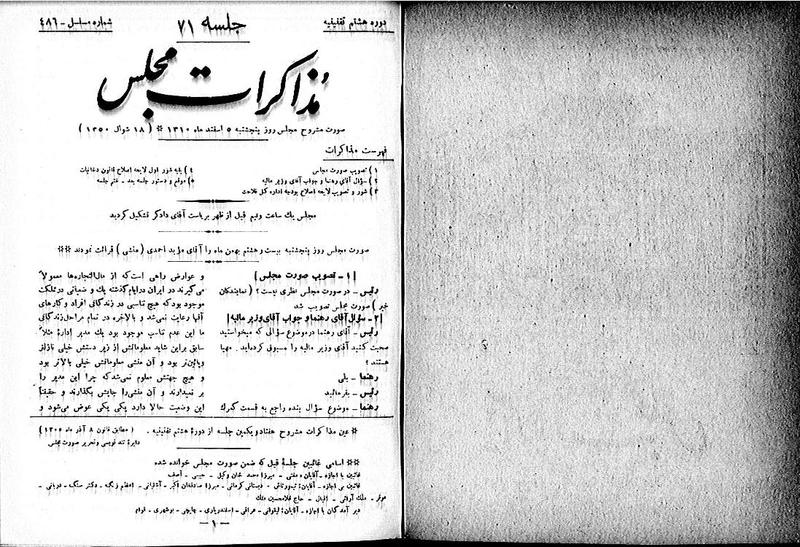 دوره هشتم تقنینیه
جلسه ۷۱
شماره مسلسل - ۴۸۶
مذاکرات مجلس
صورت مشروح مجلس روز پنجشنبه ۵ اسفند ماه ۱۳۱۰ * ( ۱۸ شوال ۱۳۵۰ )
فهرست مذاکرات
۱ ) تصویب صورت مجلس
۲ ) سؤال آقای رهنما و جواب آقای وزیر مالیه
۳ ) شور و تصویب لایحه اصلاح بودجه اداره کل فلاحت
۴ ) بقیه شور اول لایحه اصلاح قانون دخانیات
۵ ) موقع و دستور جلسه بعد - ختم جلسه
مجلس یک ساعت ونیم قبل از ظهر بریاست آقای دادگر تشکیل گردید
صورت مجلس روز پنجشنبه بیست و هشتم بهمن ماه را آقای مؤید احمدی ( منشی ) قرائت نمودند **
[ ۱ - تصویب صورت مجلس ]
رئیس - در صورت مجلس نظری نیست ؟ ( نمایندگان
خیر ) صورت مجلس تصویب شد
[ ۲ - سؤال آقای رهنما و جواب آقای وزیر مالیه ]
رئیس - آقای رهنما در موضوع سؤالی که میخواستید
صحبت کنید آقای وزیر مالیه را مسبوق کرده‌اید . مهیا
هستند ؟
رهنما - بلی
رئیس - بفرمائید
رهنما - موضوع سؤال بنده راجع به قسمت گمرک
و عوارض راهی است که از مال‌التجاره‌ها معمولاً
می‌گیرند در ایران در ایام گذشته یک و ضعیاتی در مملکت
موجود بود که هیچ تناسبی در زندگانی افراد و کارهای
آنها رعایت نمی‌شد و بالاخره در تمام مراحل زندگانی
ما این عدم تناسب موجود بود یک مدیر ادارهٔ مثلاً
سابق بر این شاید معلوماتش از زیر دستش خیلی نازلتر
و پائین‌تر بود و آن منشی معلوماتش خیلی بالاتر بود
و هیچ جهتش معلوم نمی‌شد که چرا این مدیر را
بر نمیدارند و آن منشی را جایش بگذارند و حقیقتاً
این وضعیت حالا دارد یکی یکی عوض می‌شود و
* عین مذاکرات مشروح هفتاد و یکمین جلسه از دورهٔ هشتم تقنینیه .
( مطابق قانون ۸ آذر ماه ۱۳۰۶ )
دایرهٔ تند نویسی و تحریر صورت مجلس
** اسامی غائبین جلسهٔ قبل که ضمن صورت مجلس خوانده شده
غائبین با اجازه - آقایان : مفتی - میرزا محمد خان وکیل - حبیبی - آصف
غائبین بی اجازه - آقایان : تیمورتاش - دبستانی کرمانی - میرزا صادقخان اکبر - آشتیانی - اعظم زنگنه - دکتر سنگ - قربانی -
موقر - ملک آرائی - اقبال - حاج غلامحسین ملک
دیر آمدگان با اجازه - آقایان : لیقوانی - عراقی - اسفندیاری - چایچی - بوشهری - قوام
- ۱ -